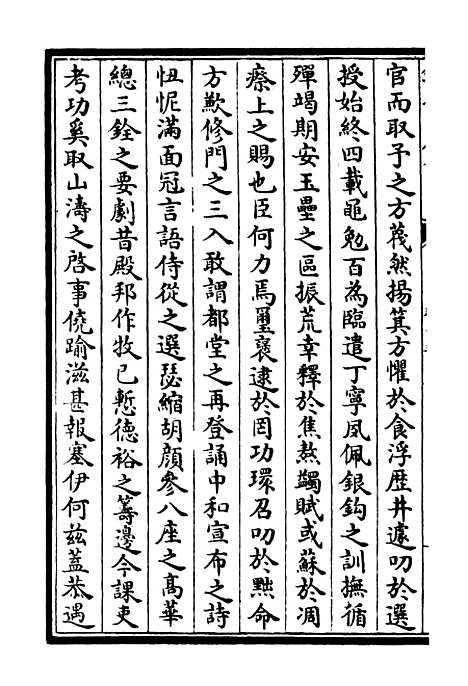 官而取予之方蔑然揚箕方懼於食浮歴井遽叨於選
授始終四載黽勉百為臨遣丁寧夙佩銀鈎之訓撫循
殫竭期安玉壘之區振荒幸釋於焦熬蠲賦或蘇於凋
瘵上之賜也臣何力焉璽褒逮於罔功環召叨於黜命
方歎修門之三入敢謂都堂之再登誦中和宣布之詩
忸怩滿面冠言語侍從之選瑟縮胡顔參八座之高華
總三銓之要劇昔殿邦作牧已慙德裕之籌邊今課吏
考功奚取山濤之啓事僥踰滋甚報塞伊何兹蓋恭遇